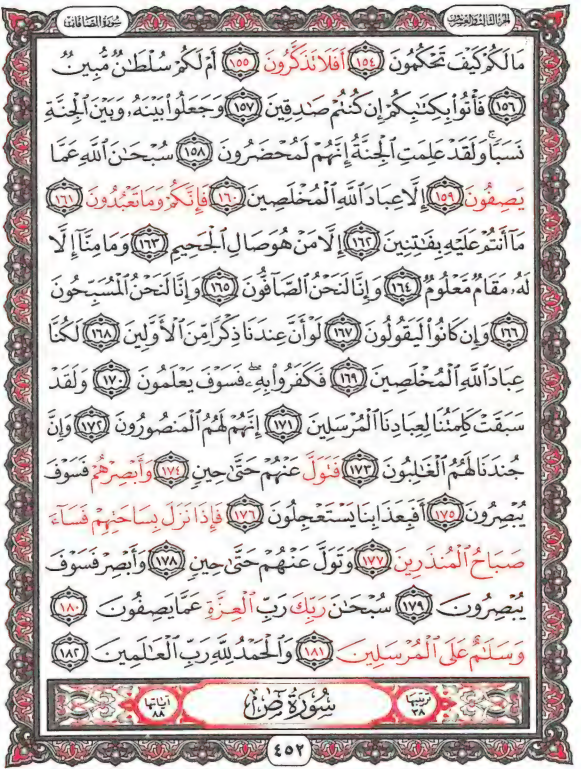 سُورَةُ الصَّافَّاتِ الجُزءُ الثَّالِثُ وَالعِشرُونَ
مَا لَكُمْ كَيْفَ تَحْكُمُونَ ١٥٤ أَفَلَا تَذَكَّرُونَ ١٥٥ أَمْ لَكُمْ سُلْطَٰنٌ مُّبِينٌ
١٥٦ فَأْتُوا۟ بِكِتَٰبِكُمْ إِن كُنتُمْ صَٰدِقِينَ ١٥٧ وَجَعَلُوا۟ بَيْنَهُۥ وَبَيْنَ ٱلْجِنَّةِ
نَسَبًا ۚ وَلَقَدْ عَلِمَتِ ٱلْجِنَّةُ إِنَّهُمْ لَمُحْضَرُونَ ١٥٨ سُبْحَٰنَ ٱللَّهِ عَمَّا
يَصِفُونَ ١٥٩ إِلَّا عِبَادَ ٱللَّهِ ٱلْمُخْلَصِينَ ١٦٠ فَإِنَّكُمْ وَمَا تَعْبُدُونَ ١٦١
مَآ أَنتُمْ عَلَيْهِ بِفَٰتِنِينَ ١٦٢ إِلَّا مَنْ هُوَ صَالِ ٱلْجَحِيمِ ١٦٣ وَمَا مِنَّآ إِلَّا
لَهُۥ مَقَامٌ مَّعْلُومٌ ١٦٤ وَإِنَّا لَنَحْنُ ٱلصَّآفُّونَ ١٦٥ وَإِنَّا لَنَحْنُ ٱلْمُسَبِّحُونَ
١٦٦ وَإِن كَانُوا۟ لَيَقُولُونَ ١٦٧ لَوْ أَنَّ عِندَنَا ذِكْرًا مِّنَ ٱلْأَوَّلِينَ ١٦٨ لَكُنَّا
عِبَادَ ٱللَّهِ ٱلْمُخْلَصِينَ ١٦٩ فَكَفَرُوا۟ بِهِۦ ۖ فَسَوْفَ يَعْلَمُونَ ١٧٠ وَلَقَدْ
سَبَقَتْ كَلِمَتُنَا لِعِبَادِنَا ٱلْمُرْسَلِينَ ١٧١ إِنَّهُمْ لَهُمُ ٱلْمَنصُورُونَ ١٧٢ وَإِنَّ
جُندَنَا لَهُمُ ٱلْغَٰلِبُونَ ١٧٣ فَتَوَلَّ عَنْهُمْ حَتَّىٰ حِينٍ ١٧٤ وَأَبْصِرْهُمْ فَسَوْفَ
يُبْصِرُونَ ١٧٥ أَفَبِعَذَابِنَا يَسْتَعْجِلُونَ ١٧٦ فَإِذَا نَزَلَ بِسَاحَتِهِمْ فَسَآءَ
صَبَاحُ ٱلْمُنذَرِينَ ١٧٧ وَتَوَلَّ عَنْهُمْ حَتَّىٰ حِينٍ ١٧٨ وَأَبْصِرْ فَسَوْفَ
يُبْصِرُونَ ١٧٩ سُبْحَٰنَ رَبِّكَ رَبِّ ٱلْعِزَّةِ عَمَّا يَصِفُونَ ١٨٠
وَسَلَٰمٌ عَلَى ٱلْمُرْسَلِينَ ١٨١ وَٱلْحَمْدُ لِلَّهِ رَبِّ ٱلْعَٰلَمِينَ ١٨٢
ترتيبها ٣٨ سُورَةُ صٓ آياتها ٨٨
٤٥٢